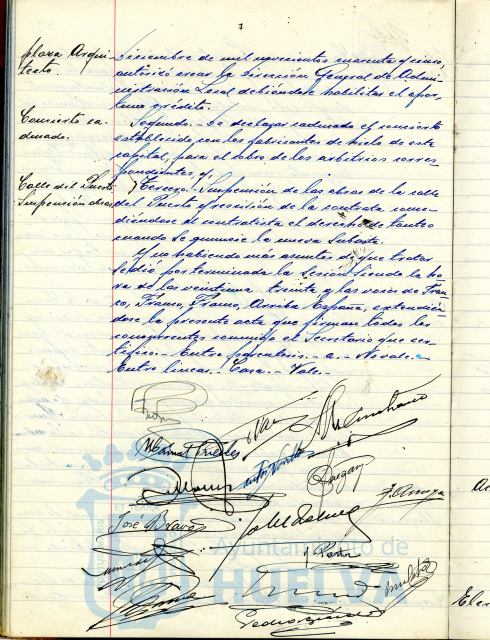 plaza Arqui-
tecto.
Diciembre de mil novecientos cuarenta y cinco,
autorizó crear la Dirección General de Admi-
nistración Local debiéndose habilitar el opor-
tuno crédito.
Concierto ca-
ducado.
Segundo.- Se declara caducado el concierto
establecido con los fabricantes de hielo de esta
capital, para el cobro de los arbitrios corres
pondientes y,
Calle del Puerto
Suspensión obras
Tercero. Suspensión de las obras de la calle
del Puerto y rescisión de la contrata conce-
diéndose al contratista el derecho de tanteo
cuando se anuncie la nueva Subasta.
Y no habiendo más asuntos de que tratar
se dió por terminada la sesión siendo la ho-
ra de las veintiuna treinta y las voces de Fran-
co, Franco, Franco, Arriba España, extendién-
dose la presente acta que firman todos los
concurrentes conmigo el Secretario que cer-
tifico.- Entre parentesis.- a.- No vale.-
Entre lineas: Casa.- Vale.-
José Bravo
Pedro
Ac
Elec
Ayuntamiento de
HUELVA